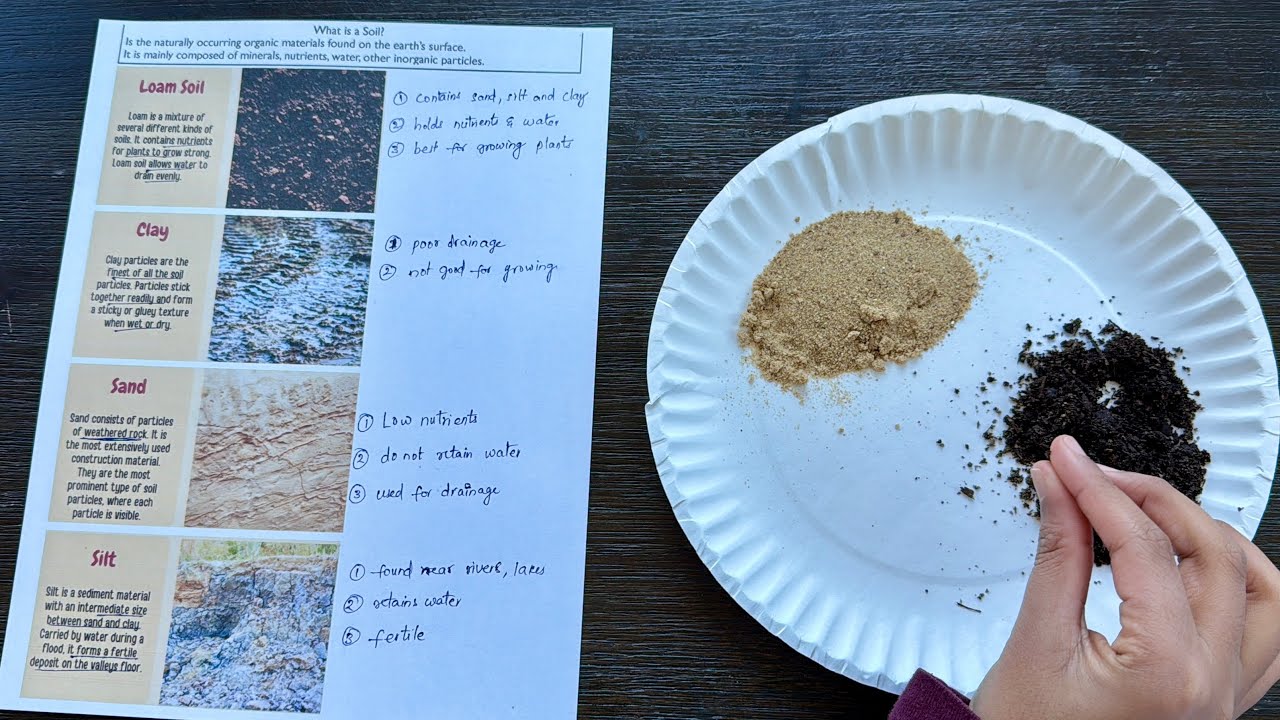 What is a Soil?
Is the naturally occurring organic materials found on the earth's surface.
It is mainly composed of minerals, nutrients, water, other inorganic particles.
Loam Soil
Loam is a mixture of
several different kinds of
soils. It contains nutrients
for plants to grow strong.
Loam soil allows water to
drain evenly.
① contains sand, silt and clay
② holds nutrients & water
③ best for growing plants
Clay
Clay particles are the
finest of all the soil
particles. Particles stick
together readily and form
a sticky or gluey texture
when wet or dry.
① poor drainage
② not good for growing
Sand
Sand consists of particles
of weathered rock. It is
the most extensively used
construction material.
They are the most
prominent type of soil
particles, where each
particle is visible.
① Low nutrients
② do not retain water
③ used for drainage
Silt
Silt is a sediment material
with an intermediate size
between sand and clay.
Carried by water during a
flood, it forms a fertile
deposit on the valleys floor.
① found near rivers, lakes
② retains water
③ fertile